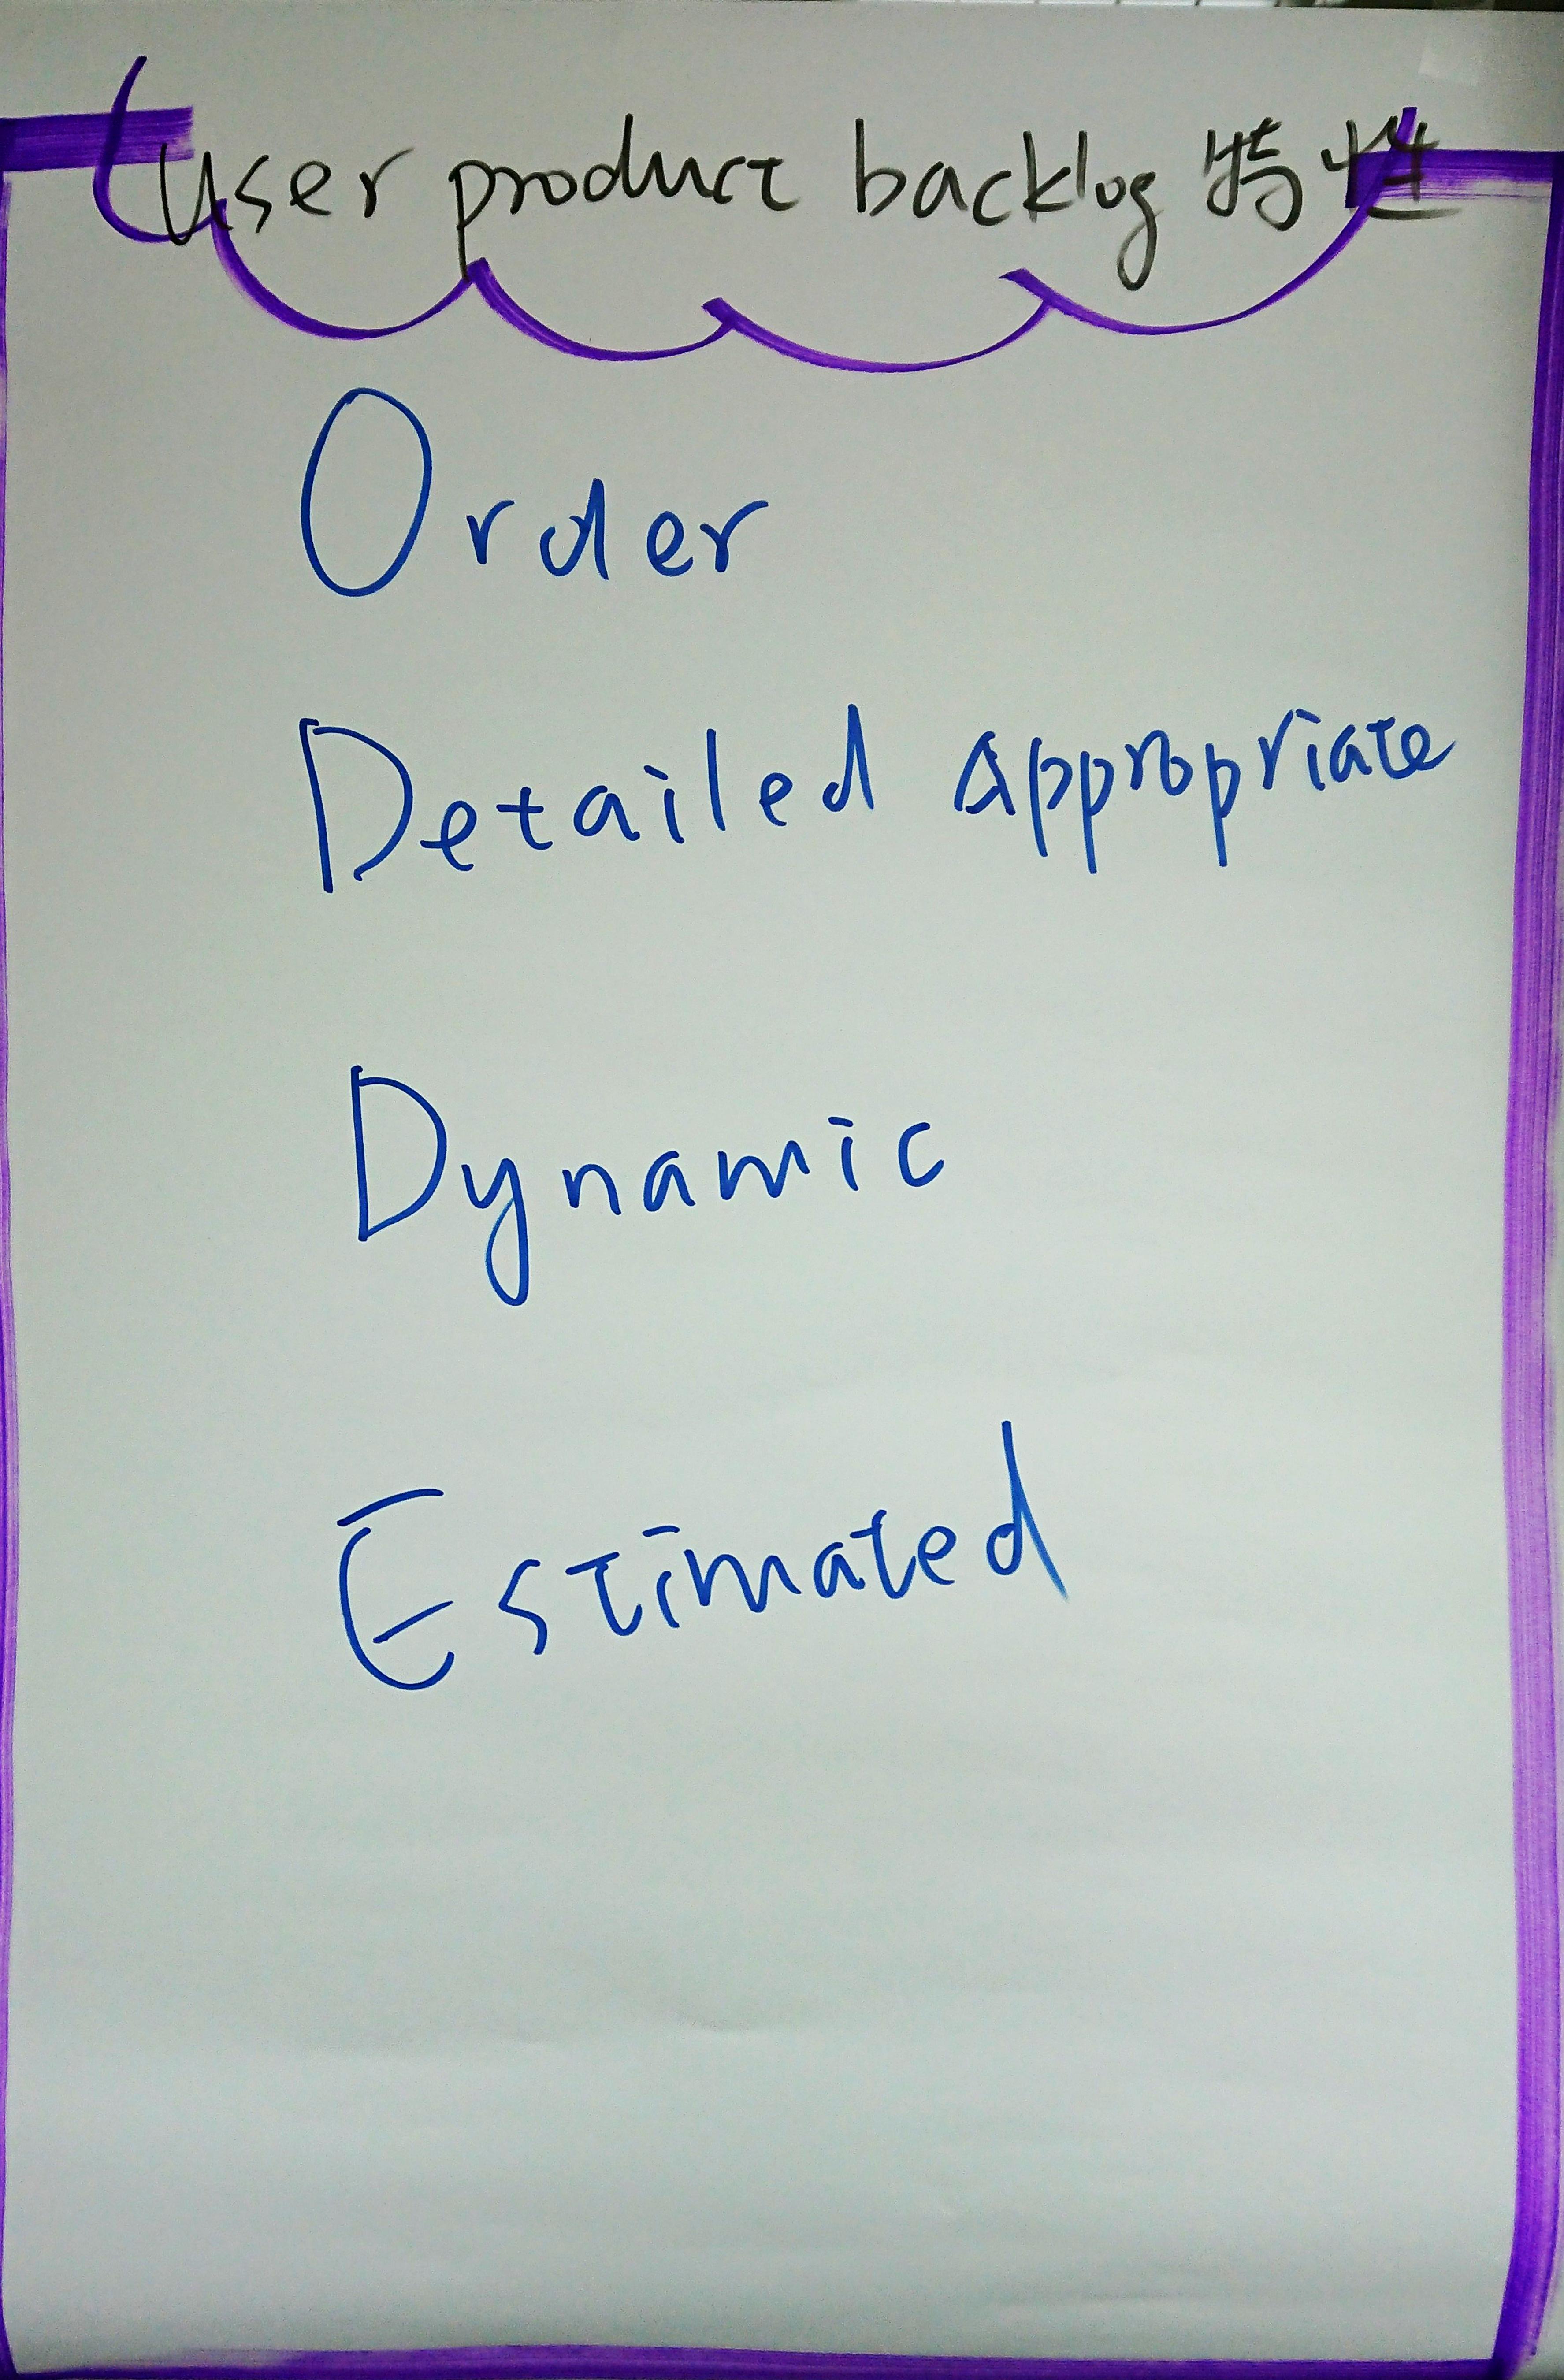 user product backlog 特性
Order
Detailed Appropriate
Dynamic
Estimated